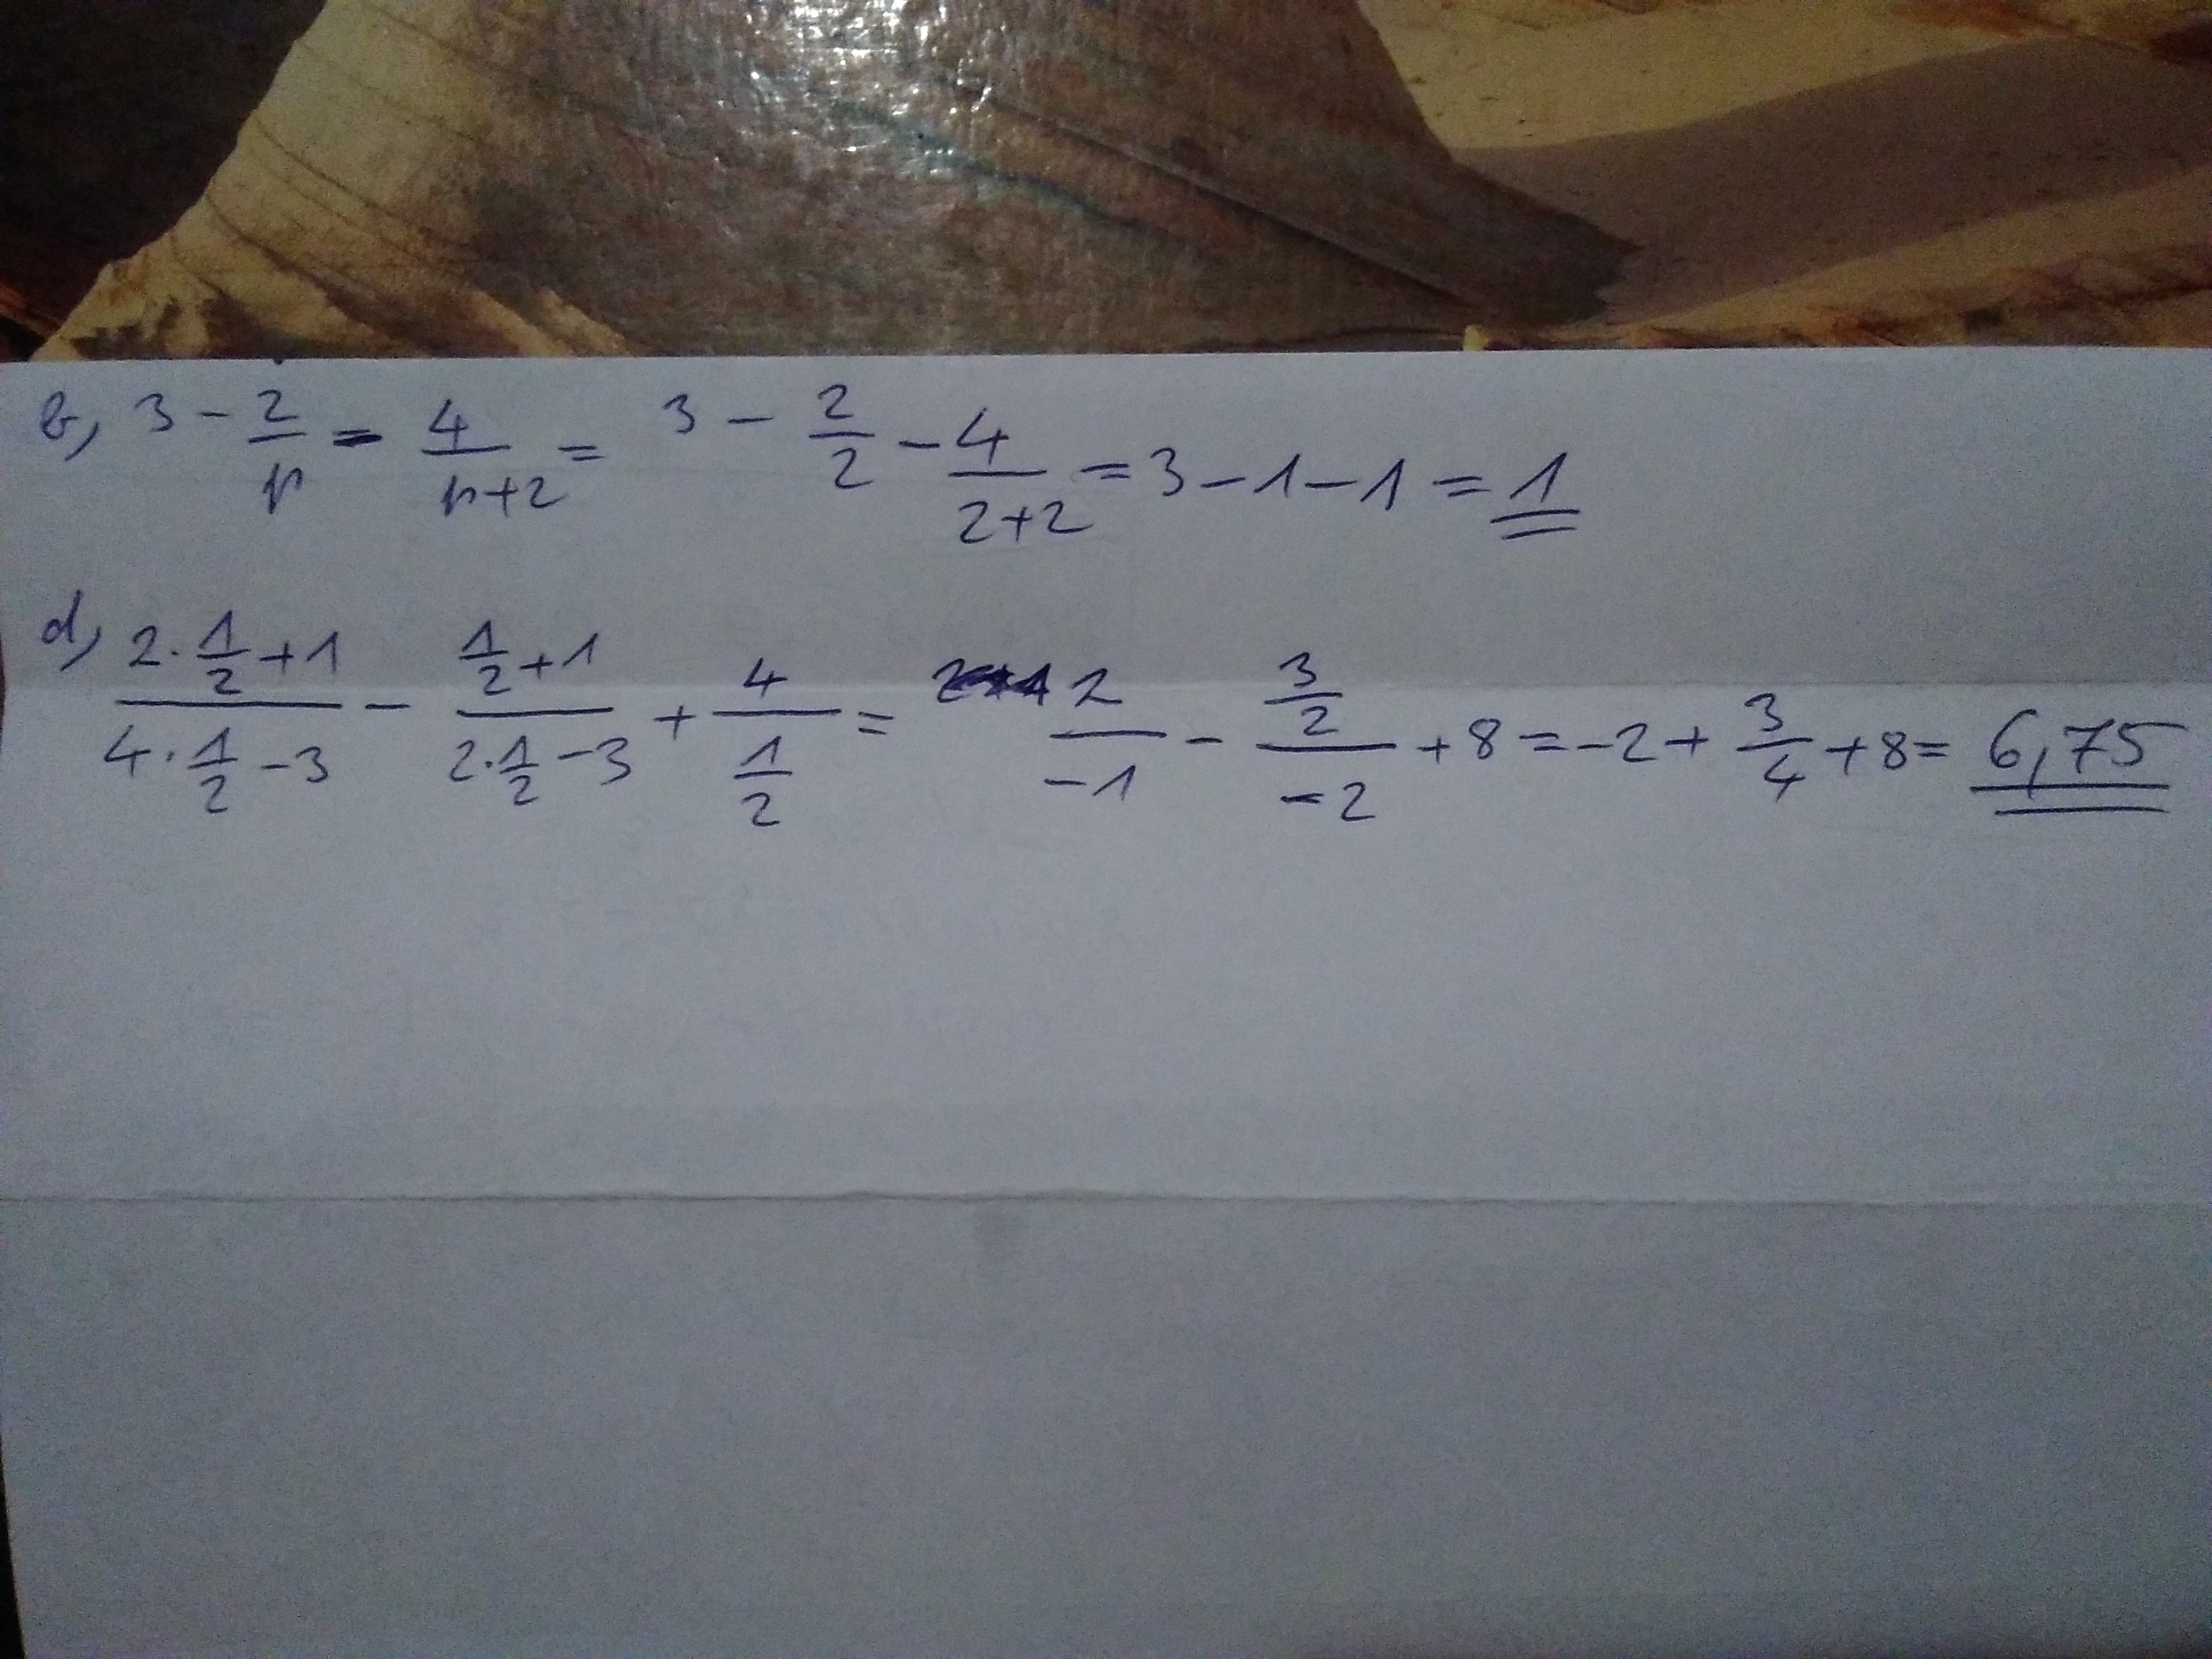 b, 3 - 2/p - 4/(p+2) = 3 - 2/2 - 4/(2+2) = 3 - 1 - 1 = 1
d, (2·1/2+1)/(4·1/2-3) - (1/2+1)/(2·1/2-3) + 4/(1/2) = 2/(-1) - (3/2)/(-2) + 8 = -2 + 3/4 + 8 = 6,75